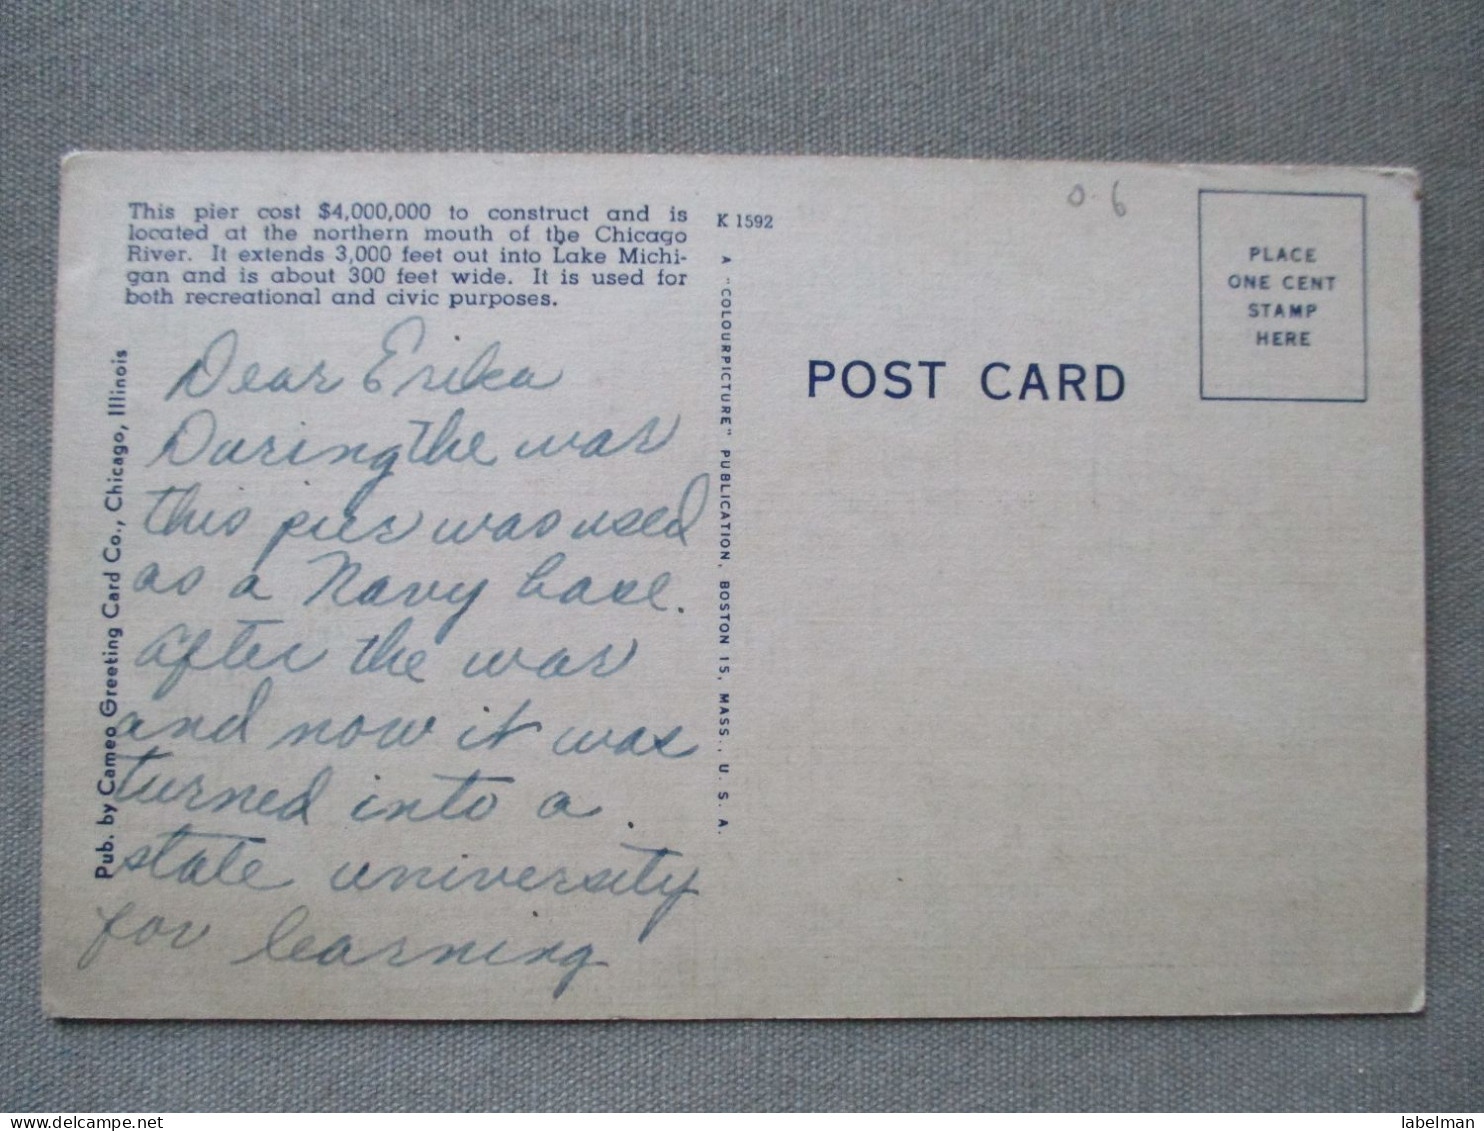 This pier cost $4,000,000 to construct and is
located at the northern mouth of the Chicago
River. It extends 3,000 feet out into Lake Michi-
gan and is about 300 feet wide. It is used for
both recreational and civic purposes.
Dear Erika
During the war
this pier was used
as a Navy base.
After the war
and now it was
turned into a
state university
for learning
Pub. by Cameo Greeting Card Co., Chicago, Illinois
K 1592
A "COLOURPICTURE" PUBLICATION, BOSTON 15, MASS., U. S. A.
0-6
POST CARD
PLACE
ONE CENT
STAMP
HERE
labelman
www.delcampe.net